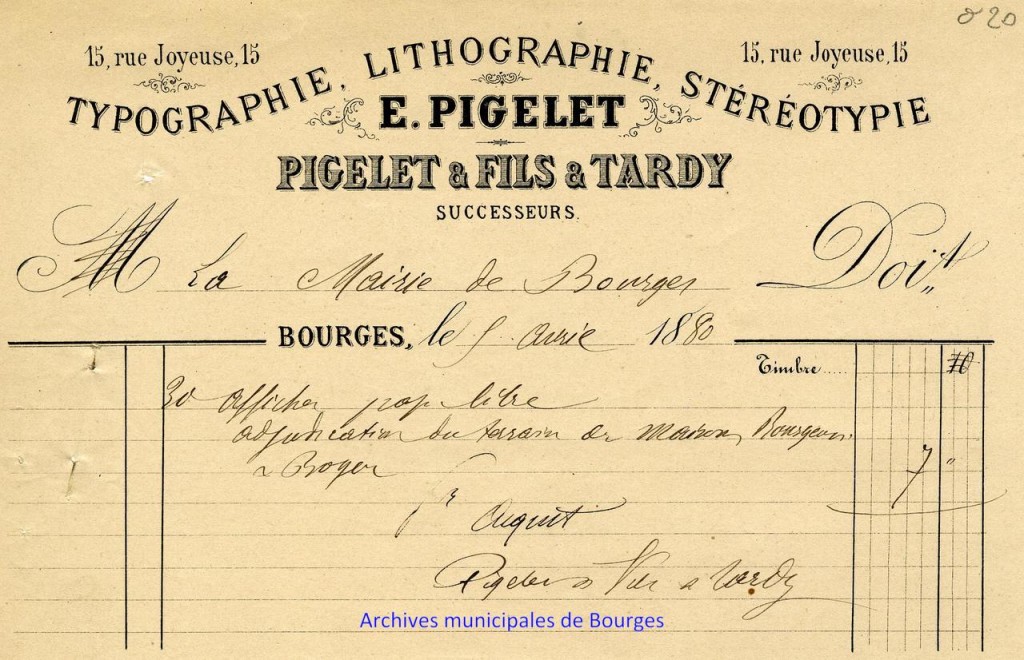 820
15, rue Joyeuse, 15
15, rue Joyeuse, 15
TYPOGRAPHIE, LITHOGRAPHIE, STÉRÉOTYPIE
E. PIGELET
PIGELET & FILS & TARDY
SUCCESSEURS.
M La Mairie de Bourges Doit
BOURGES, le 5 avril 1880
Timbre..... 10
30 affiches pap. libre
adjudication du terrain de Maisons
7 "
pr acquit
Pigelet & Fils & Tardy
Archives municipales de Bourges